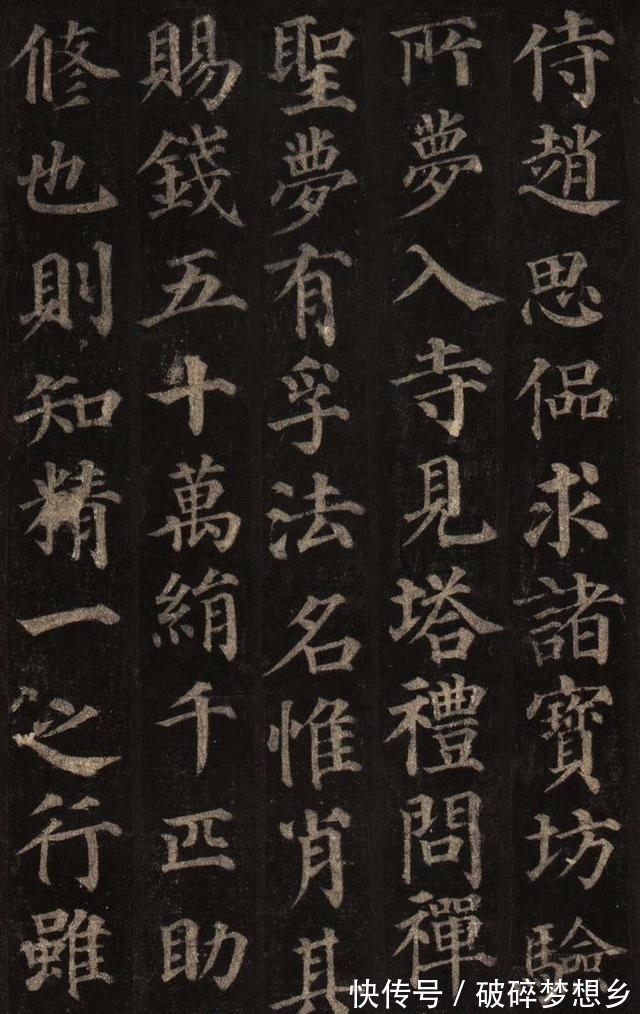 侍趙思侶求諸寶坊驗
所夢入寺見塔禮問禪
聖夢有孚法名惟肖其
賜錢五十萬絹千匹助
脩也則知精一之行雖
快传号 / 破碎梦想乡